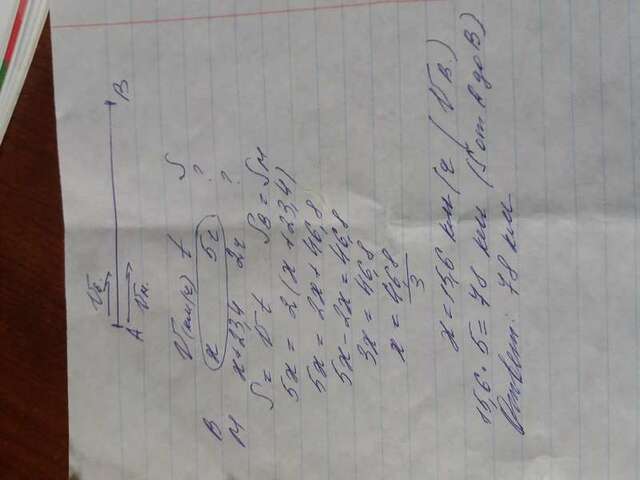 Vв.
A B
Vм.
V(км/ч) t S
В x 5ч ?
М x+23,4 2ч ?
S = Vt Sв = Sм
5x = 2(x+23,4)
5x = 2x+46,8
5x-2x=46,8
3x=46,8
x = 46,8
3
x=15,6 км/ч (Vв.)
15,6·5=78 км (S от А до В)
Ответ: 78 км